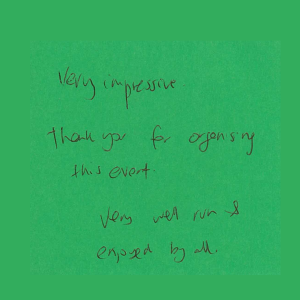 Very impressive
Thank you for organising
this event.
Very well run &
enjoyed by all.